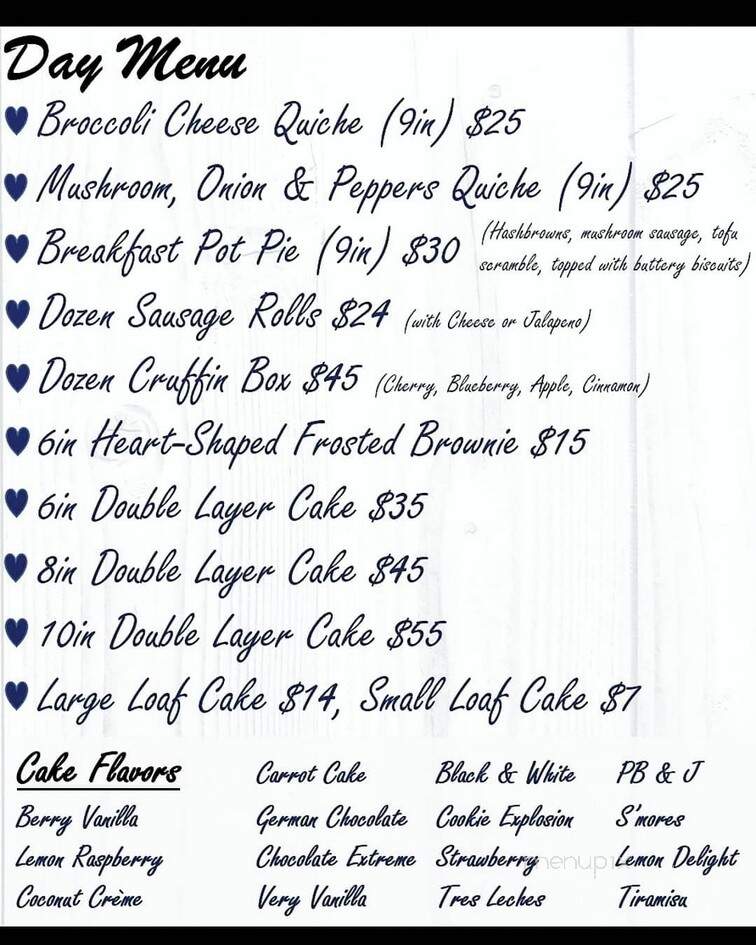 Day Menu
Broccoli Cheese Quiche (9in) $25
Mushroom, Onion & Peppers Quiche (9in) $25
Breakfast Pot Pie (9in) $30 (Hashbrowns, mushroom sausage, tofu
scramble, topped with buttery biscuits)
Dozen Sausage Rolls $24 (with Cheese or Jalapeno)
Dozen Cruffin Box $45 (Cherry, Blueberry, Apple, Cinnamon)
6in Heart-Shaped Frosted Brownie $15
6in Double Layer Cake $35
8in Double Layer Cake $45
10in Double Layer Cake $55
Large Loaf Cake $14, Small Loaf Cake $7
Cake Flavors
Berry Vanilla
Lemon Raspberry
Coconut Crème
Carrot Cake
German Chocolate
Chocolate Extreme
Very Vanilla
Black & White
Cookie Explosion
Strawberry
Tres Leches
PB & J
S'mores
Lemon Delight
Tiramisu